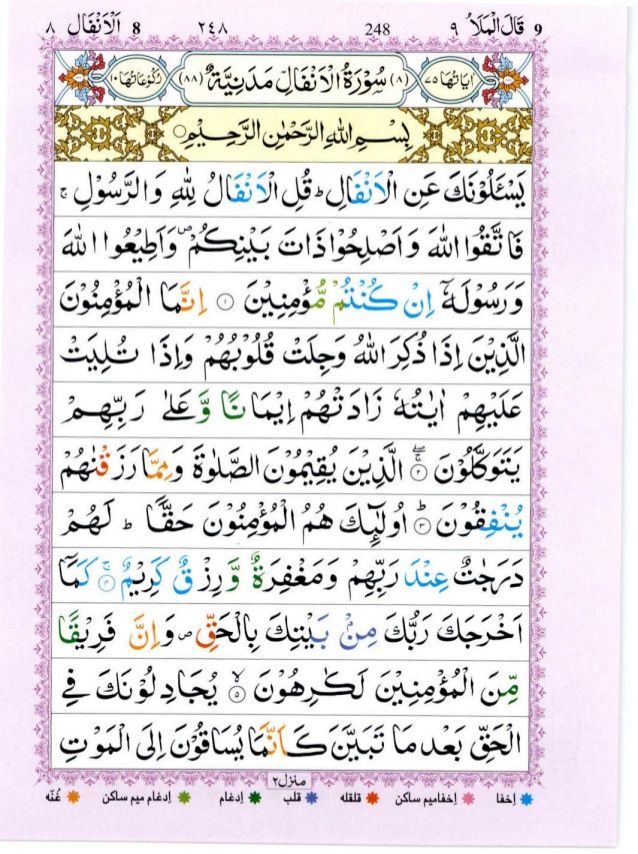 9 قَالَ الْمَلَاُ ٩ 248 ٢٤٨ 8 اَلْاَنْفَال ٨
اٰيَاتُهَا ٧٥ (٨) سُوْرَةُ الْاَنْفَالِ مَدَنِيَّةٌ (٨٨) رُكُوْعَاتُهَا ١٠
بِسْمِ اللّٰهِ الرَّحْمٰنِ الرَّحِيْمِ
يَسْـَٔلُوْنَكَ عَنِ الْاَنْفَالِ ؕ قُلِ الْاَنْفَالُ لِلّٰهِ وَالرَّسُوْلِ ۚ
فَاتَّقُوا اللّٰهَ وَاَصْلِحُوْا ذَاتَ بَيْنِكُمْ ۪ وَاَطِيْعُوا اللّٰهَ
وَرَسُوْلَهٗۤ اِنْ كُنْتُمْ مُّؤْمِنِيْنَ ۝۱ اِنَّمَا الْمُؤْمِنُوْنَ
الَّذِيْنَ اِذَا ذُكِرَ اللّٰهُ وَجِلَتْ قُلُوْبُهُمْ وَاِذَا تُلِيَتْ
عَلَيْهِمْ اٰيٰتُهٗ زَادَتْهُمْ اِيْمَانًا وَّعَلٰى رَبِّهِمْ
يَتَوَكَّلُوْنَ ۝۲ الَّذِيْنَ يُقِيْمُوْنَ الصَّلٰوةَ وَمِمَّا رَزَقْنٰهُمْ
يُنْفِقُوْنَ ۝۳ؕ اُولٰٓئِكَ هُمُ الْمُؤْمِنُوْنَ حَقًّا ؕ لَهُمْ
دَرَجٰتٌ عِنْدَ رَبِّهِمْ وَمَغْفِرَةٌ وَّرِزْقٌ كَرِيْمٌ ۝۴ۚ كَمَاۤ
اَخْرَجَكَ رَبُّكَ مِنْۢ بَيْتِكَ بِالْحَقِّ ۪ وَاِنَّ فَرِيْقًا
مِّنَ الْمُؤْمِنِيْنَ لَكٰرِهُوْنَ ۝۵ۙ يُجَادِلُوْنَكَ فِي
الْحَقِّ بَعْدَ مَا تَبَيَّنَ كَاَنَّمَا يُسَاقُوْنَ اِلَى الْمَوْتِ
منزل ٢
اِخفا اِخفامیم ساکن قلقله قلب اِدغام اِدغام میم ساکن غُنّه